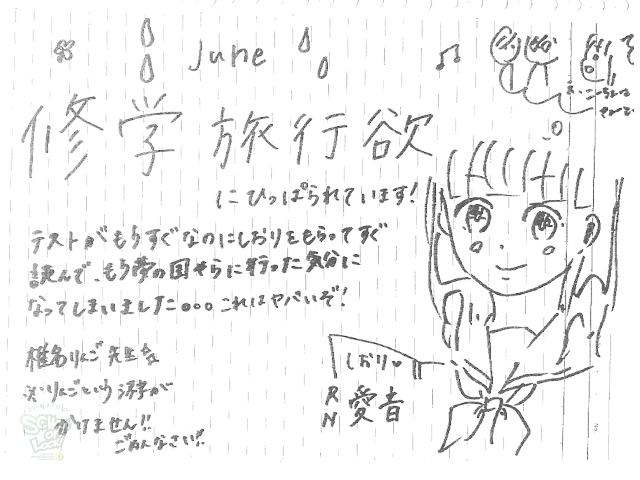 June
修学旅行欲
にひっぱられています!
テストがもうすぐなのにしおりをもらってすぐ
読んで、もう夢の国やらに行った気分に
なってしまいました。。。これはヤバいぞ!
椎名りんご先生な
※りんごという漢字が
かけません!!
ごめんなさい!!
しおり
RN 愛音